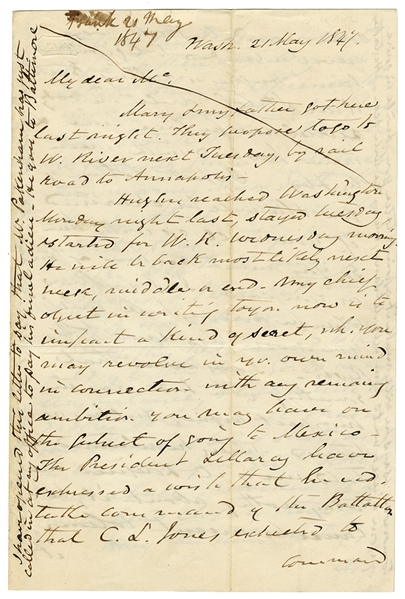 Frank 21 May
1847
Wash. 21 May 1847.
My dear Mc,
Mary & my father got here
last night. They propose to go to
W. River next Tuesday, by rail
road to Annapolis -
Hughes reached Washington
Monday night last, stayed Tuesday
& started for W. R. Wednesday morning.
He will be back most likely next
week, middle or end. My chief
object in writing to you now is to
impart a kind of secret, wh. you
may revolve in yr. own mind
in connection with any remaining
ambition you may have on
the subject of going to Mexico -
The President & Marcy have
expressed a wish that he
take command of the Battalion
that C. L. Jones expected to
command
I have opened this letter to say, that Mr. Pakenham has just
called at my office to pay his adieu. He goes to Baltimore